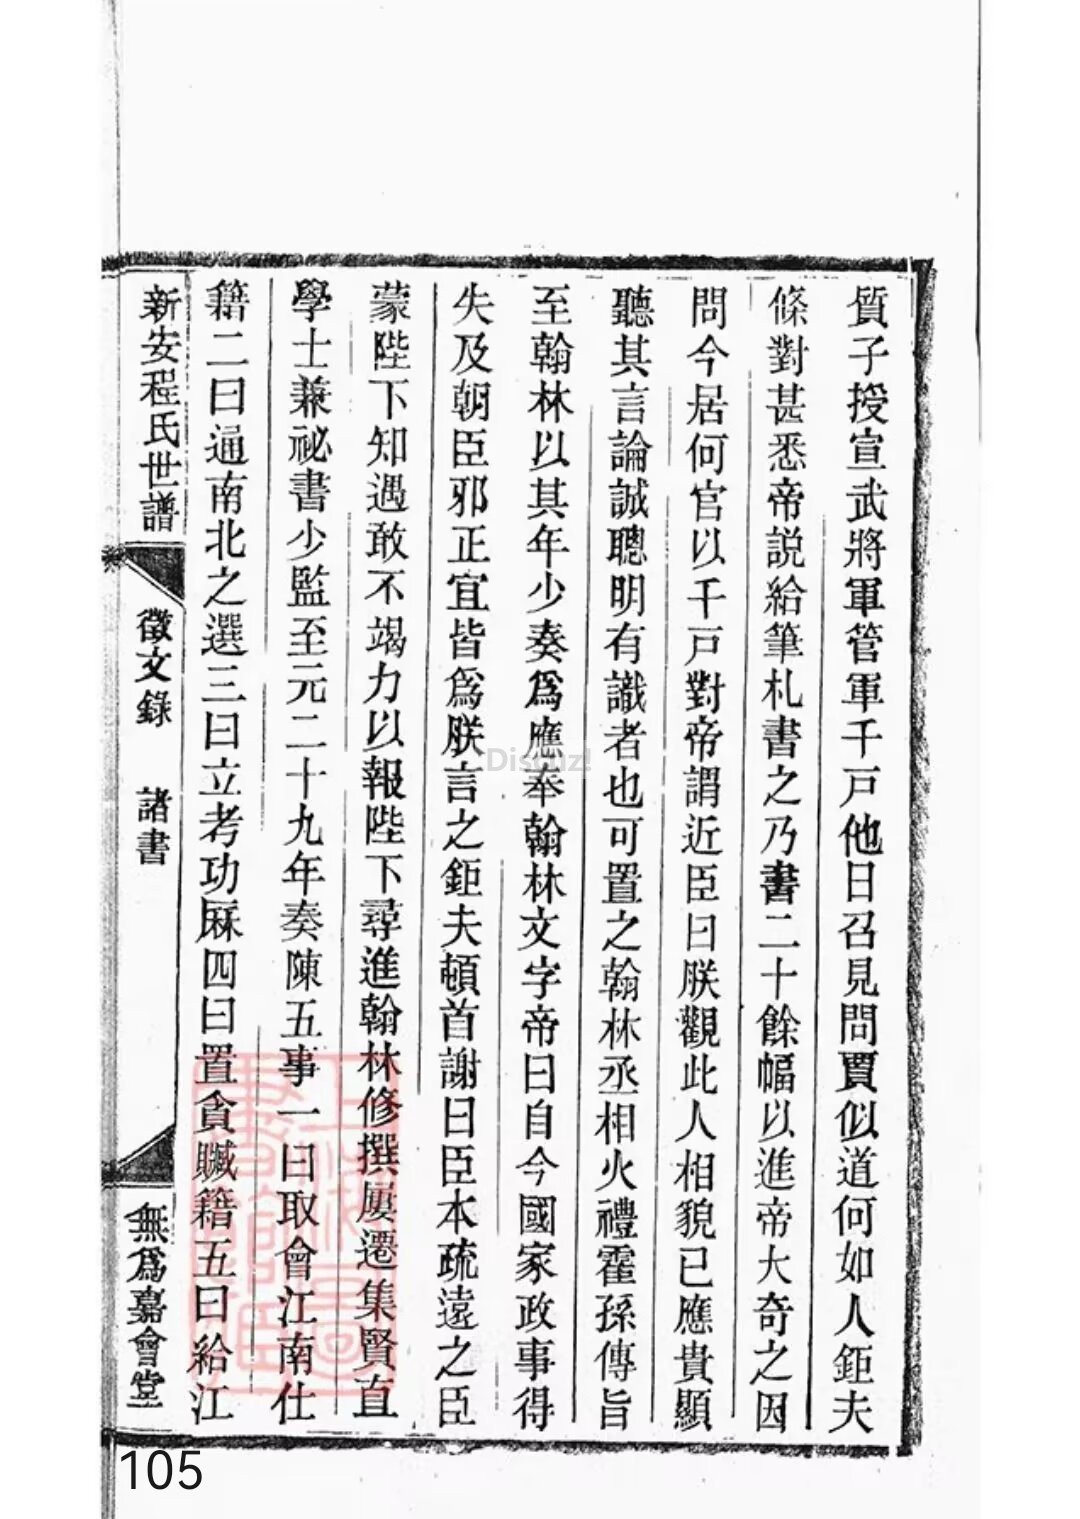 質子授宣武將軍管軍千戸他日召見問賈似道何如人鉅夫
條對甚悉帝説給筆札書之乃書二十餘幅以進帝大奇之因
問今居何官以千戸對帝謂近臣曰朕觀此人相貌已應貴顯
聽其言論誠聰明有識者也可置之翰林丞相火禮霍孫傳旨
至翰林以其年少奏爲應奉翰林文字帝曰自今國家政事得
失及朝臣邪正宜皆爲朕言之鉅夫頓首謝曰臣本疏遠之臣
蒙陛下知遇敢不竭力以報陛下尋進翰林修撰屢遷集賢直
學士兼祕書少監至元二十九年奏陳五事一曰取會江南仕
籍二曰通南北之選三曰立考功厤四曰置貪贓籍五曰給江
新安程氏世譜
徵文錄 諸書
無爲嘉會堂
Discuz!
105